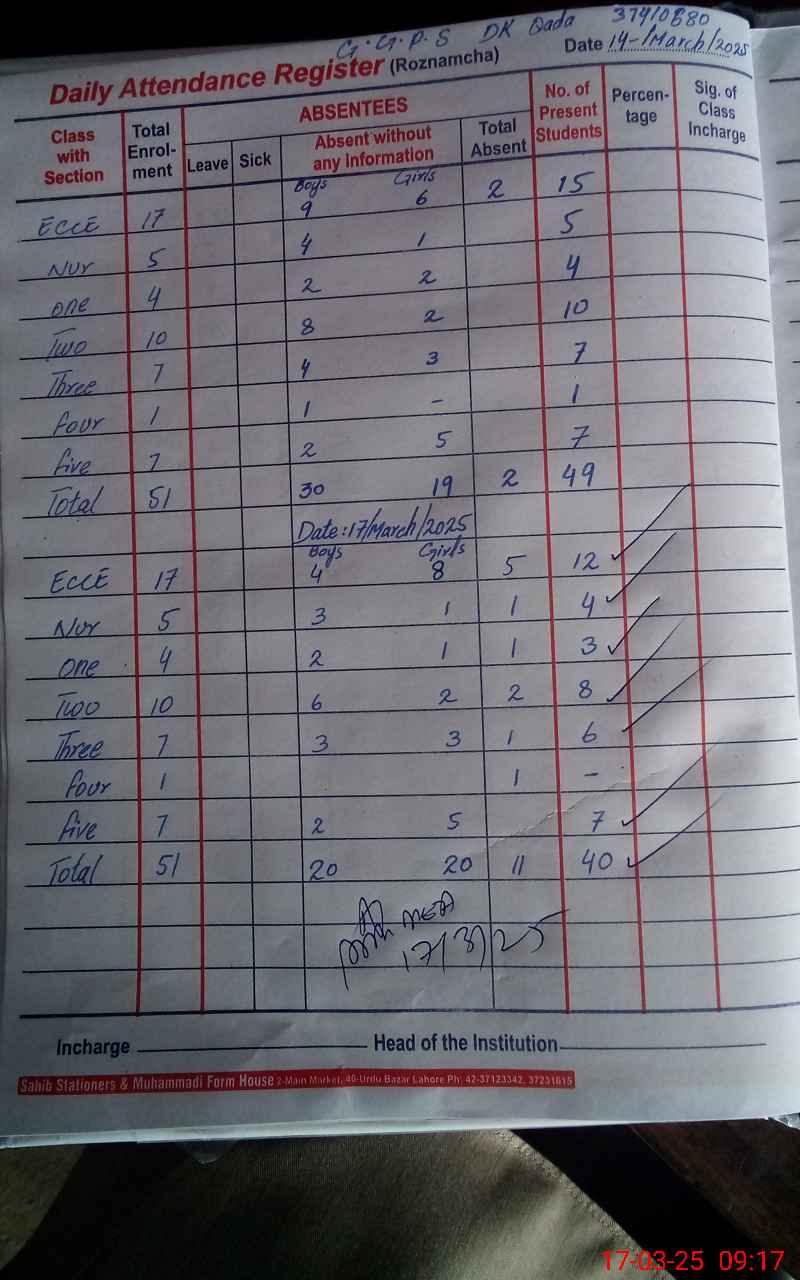 G.G.P.S DK Qada 37410680
Daily Attendance Register (Roznamcha) Date 14-/March/2025
Class with Section Total Enrol-ment ABSENTEES No. of Present Students Percen-tage Sig. of Class Incharge
Leave Sick Absent without any information Total Absent
Boys Girls
ECCE 17 9 6 2 15
Nur 5 4 1 5
one 4 2 2 4
Two 10 8 2 10
Three 7 4 3 7
four 1 1 - 1
five 7 2 5 7
Total 51 30 19 2 49
Date:17/March/2025
Boys Girls
ECCE 17 4 8 5 12
Nur 5 3 1 1 4
one 4 2 1 1 3
Two 10 6 2 2 8
Three 7 3 3 1 6
four 1 1 -
five 7 2 5 7
Total 51 20 20 11 40
MEA
17/3/25
Incharge Head of the Institution
Sahib Stationers & Muhammadi Form House 2-Main Market, 40-Urdu Bazar Lahore Ph: 42-37123342, 37231615
17-03-25 09:17